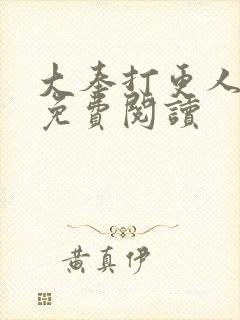 大奉打更人
免費閱讀
黃真伊